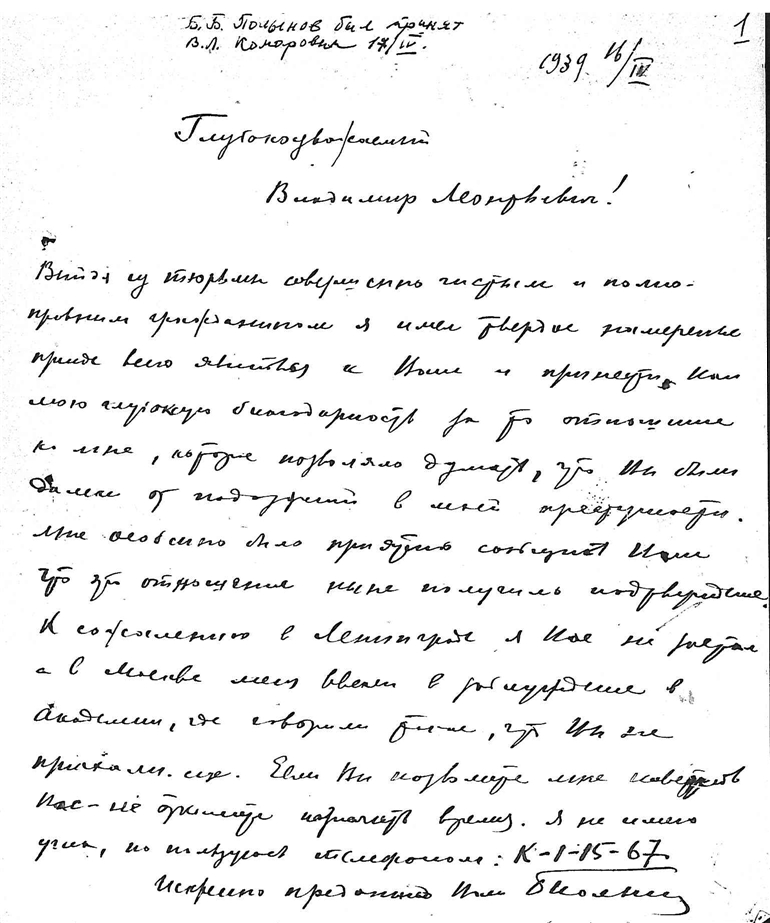 Б.Б. Полынов был принят
В.Л. Комаровым 17/IV.
1
1939 16/IV
Глубокоуважаемый
Владимир Леонтьевич!
Выйдя из тюрьмы совершенно чистым и полно-
правным гражданином я имел твердое намеренье
прежде всего явиться к Вам и принести Вам
мою глубокую благодарность за то отношение
ко мне, которое позволяло думать, что Вы были
далеки от подозрений в моей преступности.
Мне особенно было приятно сообщить Вам
что это отношение ныне получило подтверждение.
К сожалению в Ленинграде я Вас не застал
а в Москве меня ввели в заблуждение в
Академии, где говорили мне, что Вы не
приехали еще. Если Вы позволите мне навестить
Вас – не откажите назначить время. Я не имею
угла, но пользуюсь телефоном: К-1-15-67
Искренно преданный Вам БПолынов